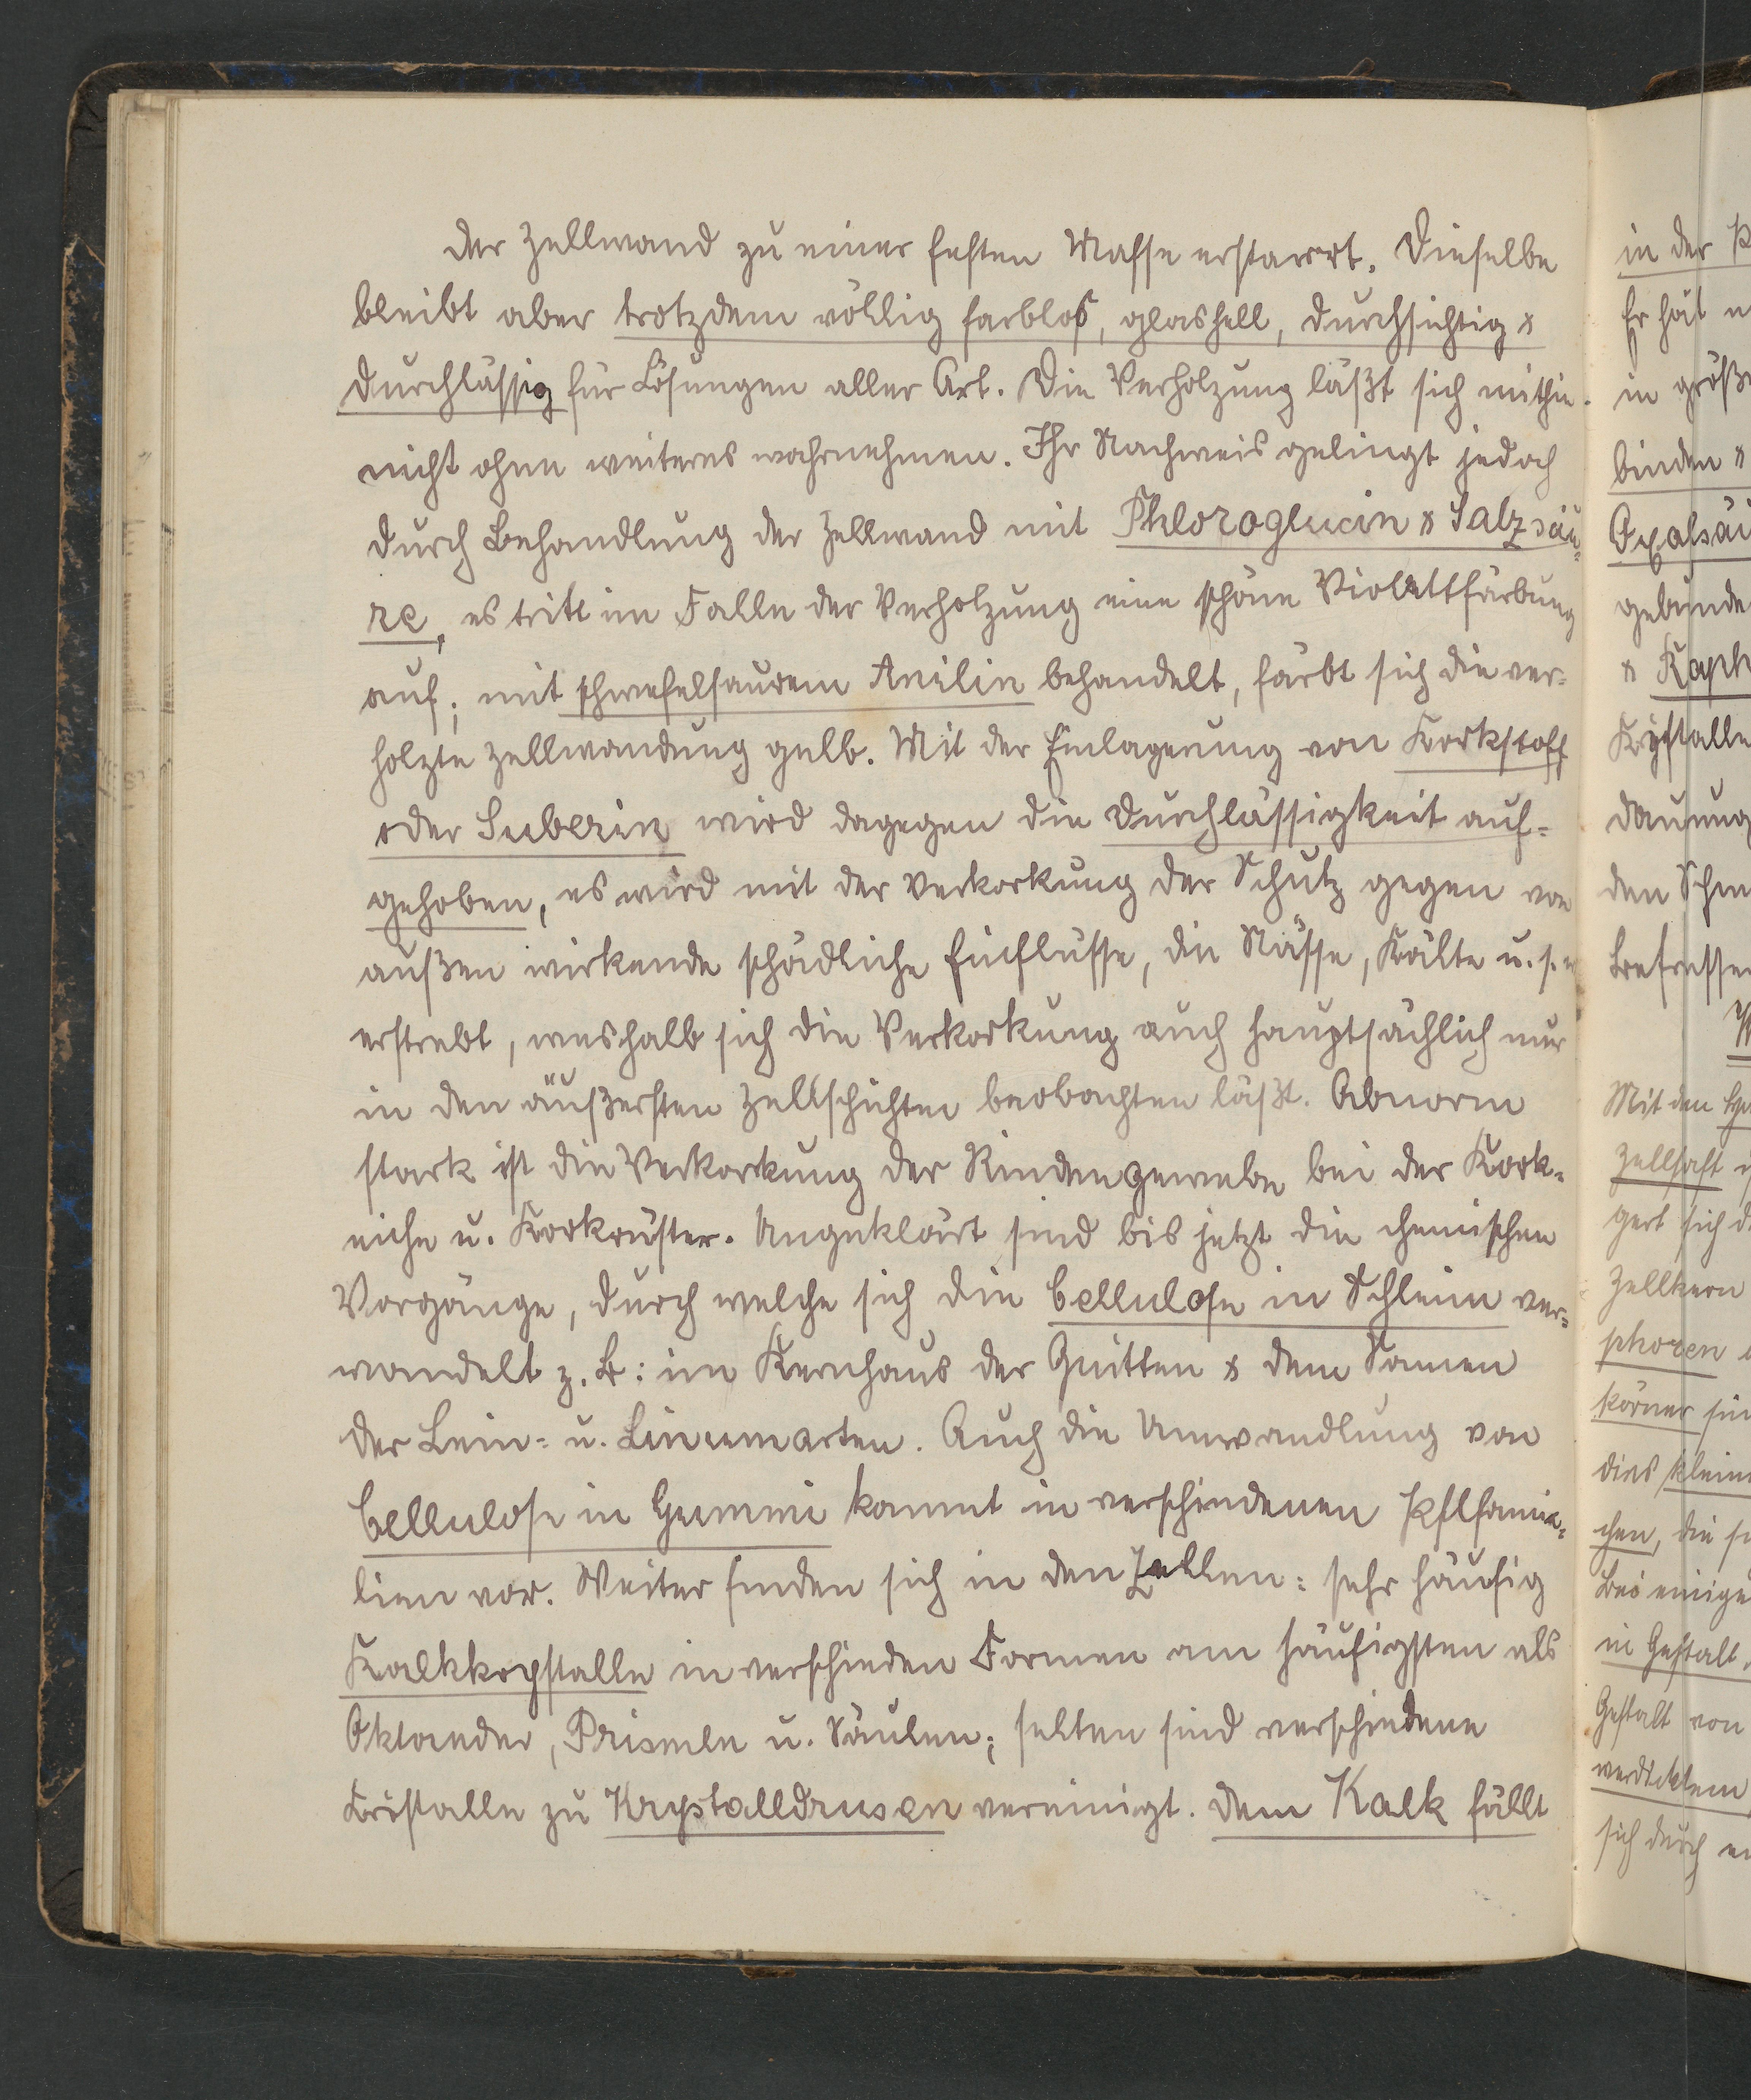 der Zellwand zu einer festen Masse erstarrt. Dieselbe
bleibt aber trotzdem völlig farblos, glashell, durchsichtig &
durchlässig für Lösungen aller Art. Die Verholzung läßt sich mithin
nicht ohne weiteres wahrnehmen. Ihr Nachweis gelingt jedoch
durch Behandlung der Zellwand mit Phloroglucin & Salzsäu-
re, es tritt im Falle der Verholzung eine schöne Violettfärbung
auf; mit schwefelsaurem Anilin behandelt, färbt sich die ver-
holzte Zellwandung gelb. Mit der Einlagerung von Korkstoff
oder Suberin wird dagegen die Durchlässigkeit auf-
gehoben, es wird mit der Verkorkung der Schutz gegen von
außen wirkende schädliche Einflüsse, die Nässe, Kälte u. s. w
erstrebt, weshalb sich die Verkorkung auch hauptsächlich nur
in den äußersten Zellschichten beobachten läßt. Abnorm
stark ist die Verkorkung der Rindengewebe bei der Kork-
eiche u. Korkrüster. Ungeklärt sind bis jetzt die chemischen
Vorgänge, durch welche sich die Cellulose in Schleim ver-
wandelt z. B: im Kernhaus der Quitten & dem Samen
der Lein- u. Linumarten. Auch die Umwandlung von
Cellulose in Gummi kommt in verschiedenen Pflfami-
lien vor. Weiter finden sich in den Zellen: sehr häufig
Kalkkrystalle in verschieden Formen am häufigsten als
Oktaeder, Prismeln u. Säulen; selten sind verschiedene
Kristalle zu Krystalldrusen vereinigt. Dem Kalk fällt
in der
Er hat
in größ
binden &
Oxalsäu
gebunde
& Raph
Krystalle
dauung
den
Befresse
Mit den
Zellsaft
gert sich d
Zellkern
phoren
körner sin
dies klein
chen, die s
bei einige
in Gestalt
Gestalt von
sich durch